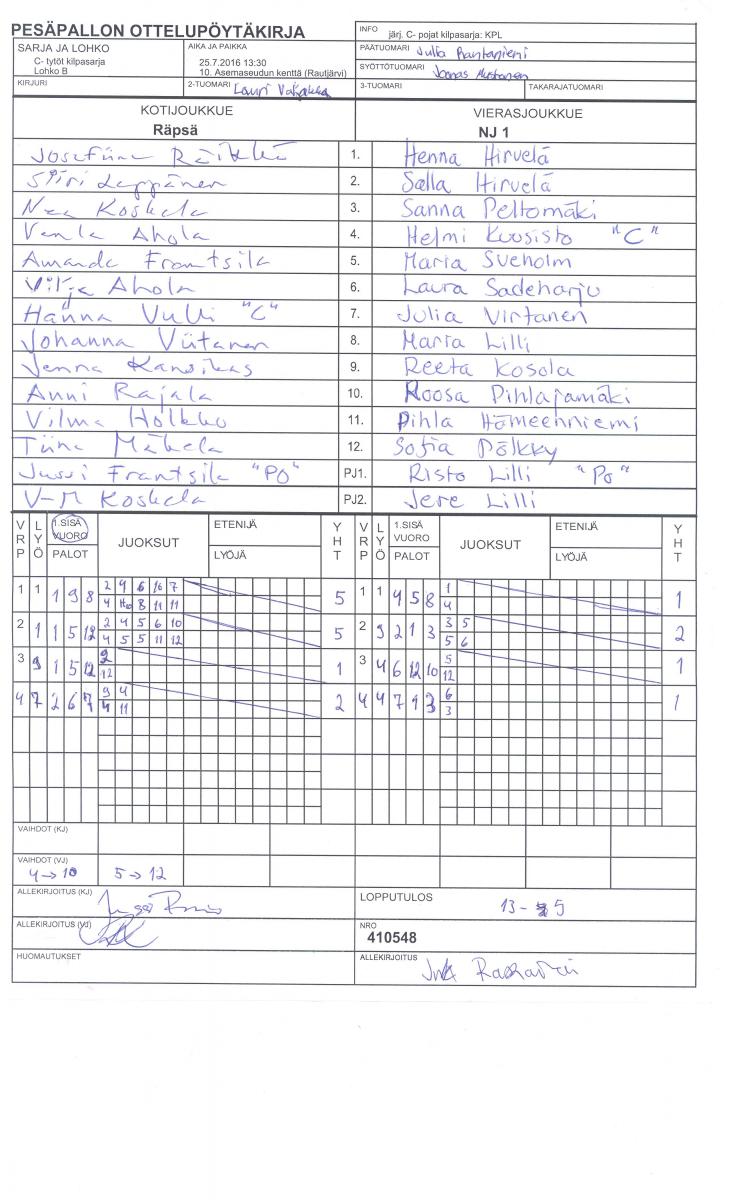 PESÄPALLON OTTELUPÖYTÄKIRJA
INFO järj. C- pojat kilpasarja: KPL
SARJA JA LOHKO
C- tytöt kilpasarja
Lohko B
AIKA JA PAIKKA
25.7.2016 13:30
10. Asemaseudun kenttä (Rautjärvi)
PÄÄTUOMARI Julia Rantaniemi
SYÖTTÖTUOMARI Joonas Mustonen
KIRJURI
2-TUOMARI Lauri
3-TUOMARI
TAKARAJATUOMARI
KOTIJOUKKUE
Räpsä
VIERASJOUKKUE
NJ 1
Josefiina Räikkä 1. Henna Hirvelä
Siiri Leppänen 2. Salla Hirvelä
Nea Koskela 3. Sanna Peltomäki
Venla Ahola 4. Helmi Kuosisto "C"
Amanda Frantsila 5. Maria Sveholm
Vilja Ahola 6. Laura Sadeharju
Hanna Vulli "C" 7. Julia Virtanen
Johanna Viitanen 8. Maria Lilli
Jenna Kansikas 9. Reeta Kosola
Anni Rajala 10. Roosa Pihlajamäki
Vilma Holkko 11. Pihla Hämeenniemi
Tiina Mäkelä 12. Sofia Pölkky
Jussi Frantsila "PO" PJ1. Risto Lilli "PO"
V-M Koskela PJ2. Jere Lilli
VRP LYÖ 1.SISÄ VUORO PALOT JUOKSUT ETENIJÄ LYÖJÄ YHT VRP LYÖ 1.SISÄ VUORO PALOT JUOKSUT ETENIJÄ LYÖJÄ YHT
1 1 1 9 8 2 4 6 10 7 5 1 1 4 5 8 1 1
8 11 11 4
2 1 1 5 12 2 4 5 6 10 5 2 9 2 1 3 3 5 2
4 5 5 11 12 5 6
3 9 1 5 12 2 1 3 4 6 12 10 5 1
12 12
4 7 2 6 7 9 4 2 4 4 7 1 3 6 1
4 11 3
VAIHDOT (KJ)
VAIHDOT (VJ)
4→10 5→12
ALLEKIRJOITUS (KJ)
LOPPUTULOS 13 - 5
ALLEKIRJOITUS (VJ)
NRO
410548
HUOMAUTUKSET
ALLEKIRJOITUS